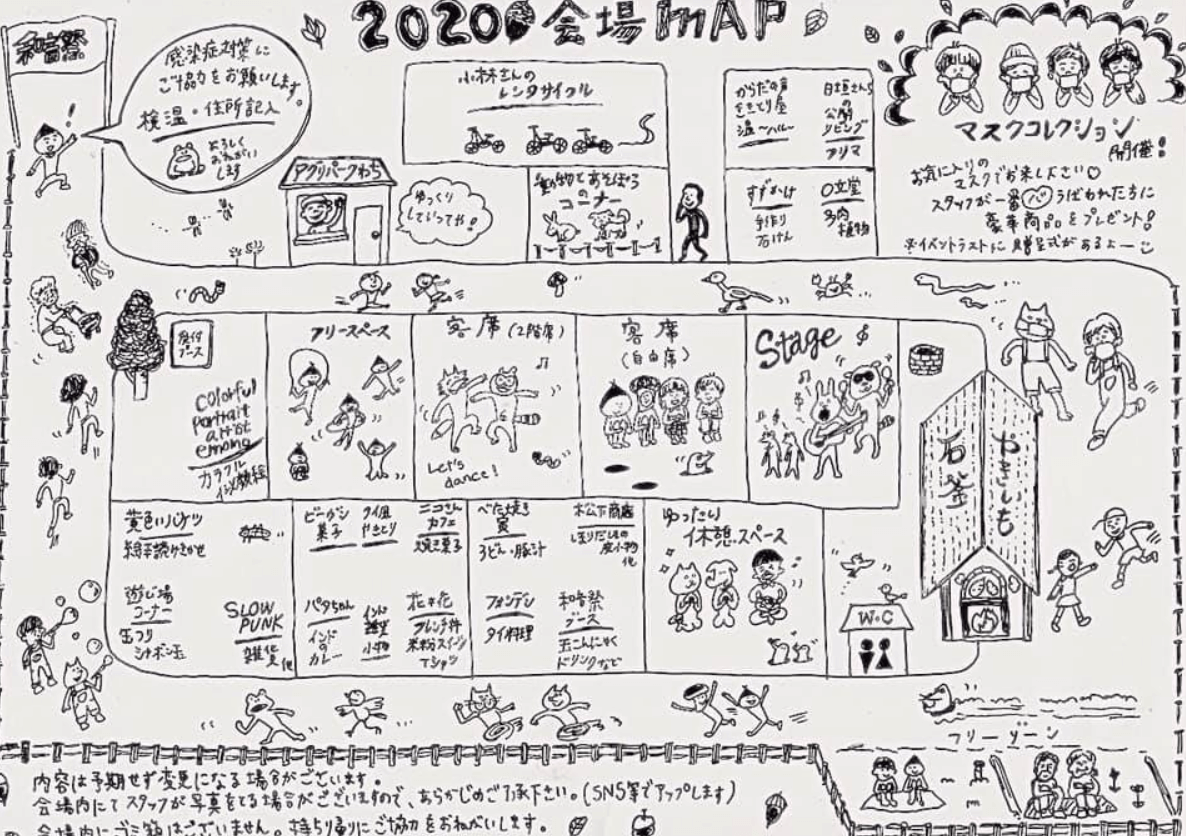 2020 会場 MAP
和音祭
感染症対策に
ご協力をお願いします。
検温・住所記入
よろしく
おねがい
します
!
アグリパークわち
ゆっくり
してってや!
小林さんの
レンタサイクル
動物とあそぼう
コーナー
からだの声
ききとり屋
温〜ハル〜
日垣さんちの
公開
リビング
フリマ
すずかけ
手作り
石けん
〇立堂
多肉
植物
マスクコレクション
開催!
お気に入りの
マスクでお来し下さい♡
スタッフが一番
うばわれた方に
豪華商品をプレゼント!
※イベントラストに贈呈式があるよー
受付
ブース
colorful
portrait
artist
emong
カラフル
似顔絵
フリースペース
客席(2階席)
Let's
dance!
客席
(自由席)
Stage
やきいも
石釜
黄色いバケツ
絵本読みきかせ
遊び場
コーナー
玉つり
シャボン玉
SLOW
PUNK
雑貨 他
ビーガン
菓子
タイ風
やきとり
ニコさん
カフェ
焼き菓子
パタちゃん
インドの
カレー
インド
雑貨
小物
花キ花
フレンチ丼
米粉スイーツ
Tシャツ
べた焼き
寅
うどん・豚汁
松下商店
ほりだしもの
皮小物
他
フォンデン
タイ料理
和音祭
ブース
玉こんにゃく
ドリンクなど
ゆったり
休憩スペース
W・C
フリーゾーン
内容は予期せず変更になる場合がございます。
会場内にてスタッフが写真をとる場合がございますので、あらかじめご了承下さい。(SNS等でアップします)
会場内にゴミ箱はございません。持ち帰りにご協力をおねがいします。